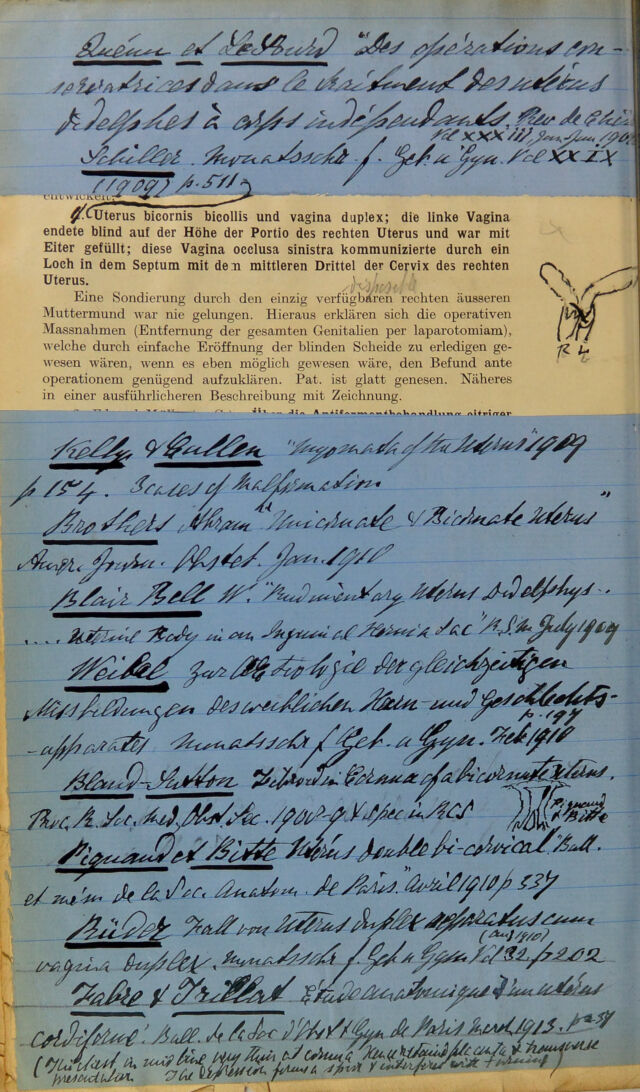 Quénu et Ledouird "Des opérations con-
servatrices dans le traitment des utérus
didelphes à corps indépendants. Rev de Chir
Vol XXXIII, Jan-Jun 190
Schiller. Monatsschr f. Geb. u Gyn. Vol XXIX
(1909) p. 511.
entwickelt.
Uterus bicornis bicollis und vagina duplex; die linke Vagina
endete blind auf der Höhe der Portio des rechten Uterus und war mit
Eiter gefüllt; diese Vagina occlusa sinistra kommunizierte durch ein
Loch in dem Septum mit dem mittleren Drittel der Cervix des rechten
Uterus.
disposable
Eine Sondierung durch den einzig verfügbaren rechten äusseren
Muttermund war nie gelungen. Hieraus erklären sich die operativen
Massnahmen (Entfernung der gesamten Genitalien per laparotomiam),
welche durch einfache Eröffnung der blinden Scheide zu erledigen ge-
wesen wären, wenn es eben möglich gewesen wäre, den Befund ante
operationem genügend aufzuklären. Pat. ist glatt genesen. Näheres
in einer ausführlicheren Beschreibung mit Zeichnung.
R L
Über die Antiforminbehandlung eitriger
Kelly & Cullen "Myomata of the Uterus" 1909
p 154. 3 cases of Malformation
Brothers Abram "Unicornate & Bicornate Uterus"
Amer. Journ. Obstet. Jan. 1910
Blair Bell W. "Rudimentary Uterus Didelphys..
.... Uterine Body in an Inguinal Hernia Sac" R.S.M July 1909
Weibel zur Aetiologie der gleichzeitigen
Missbildungen des weiblichen Harn- und Geschlechts-
p. 197
-apparates. Monatsschr f Geb. u Gyn. Feb 1910
Bland-Sutton Fibroid in Cornua of a bicornute uterus.
Proc. R. Soc. Med. Obst. Sec. 1908-9 & spec in RCS
Piquand & Bitte
Piquand et Bitte Utérus double bi-cervical "Bull.
et mém de la Soc. Anatom. de Paris." Avril 1910 p 337
Rüder Fall von Uterus duplex separatus cum
(Aug 1910)
vagina duplex. Monatsschr f. Geb u Gyn Vol 32. p 202
Fabre & Trillat Etude anatomique d'un utérus
cordiforme. Bull. de la Soc d'Obst & Gyn de Paris March 1913. p 237
very thin at cornua & transverse
presentation. The depression forms a spur & interferes with turning